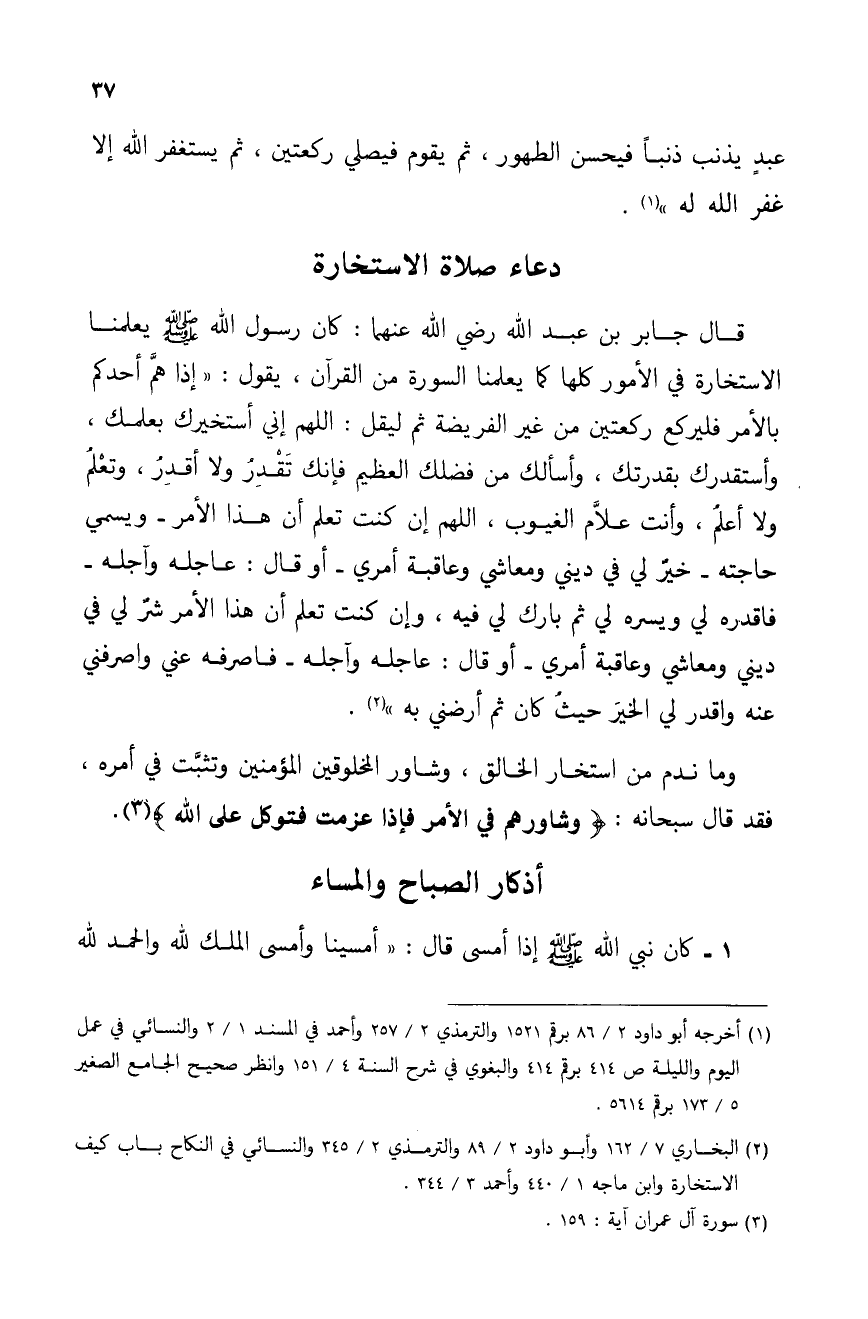 ٣٧
عبدٍ يذنب ذنبـاً فيحسن الطهور ، ثم يقوم فيصلي ركعتين ، ثم يستغفر الله إلا
غفر الله له »(١) .
دعاء صلاة الاستخارة
قـال جـابر بن عبـد الله رضي الله عنهما : كان رسول الله ﷺ يعلمنـا
الاستخارة في الأمور كلها كما يعلمنا السورة من القرآن ، يقول : « إذا همَّ أحدكم
بالأمر فليركع ركعتين من غير الفريضة ثم ليقل : اللهم إني أستخيرك بعلمـك ،
وأستقدرك بقدرتك ، وأسألك من فضلك العظيم فإنك تَقْدرُ ولا أقـدِرُ ، وتعْلمُ
ولا أعلمُ ، وأنت عـلاَّم الغيـوب ، اللهم إن كنت تعلم أن هـذا الأمر ـ ويسمي
حاجته ـ خيرٌ لي في ديني ومعاشي وعاقبـة أمري ـ أو قـال : عـاجلـه وآجلـه ـ
فاقدره لي ويسره لي ثم بارك لي فيه ، وإن كنت تعلم أن هذا الأمر شرٌ لي في
ديني ومعاشي وعاقبة أمري ـ أو قال : عاجلـه وآجلـه ـ فـاصرفـه عني واصرفني
عنه واقدر لي الخيَر حيثُ كان ثم أرضني به »(٢) .
وما نـدم من استخـار الخـالق ، وشـاور المخلوقين المؤمنين وتثبَّت في أمره ،
فقد قال سبحانه : ﴿ وشاورهم في الأمر فإذا عزمت فتوكل على الله ﴾(٣).
أذكار الصباح والمساء
١ ـ كان نبي الله ﷺ إذا أمسى قال : « أمسينا وأمسى الملـك لله والحمـد لله
(١) أخرجه أبو داود ٢ / ٨٦ برقم ١٥٢١ والترمذي ٢ / ٢٥٧ وأحمد في المسنـد ١ / ٢ والنسائي في عمل
اليوم والليلـة ص ٤١٤ برقم ٤١٤ والبغوي في شرح السنـة ٤ / ١٥١ وانظر صحيـح الجامـع الصغير
٥ / ١٧٣ برقم ٥٦١٤ .
(٢) البخـاري ٧ / ١٦٢ وأبـو داود ٢ / ٨٩ والترمـذي ٢ / ٣٤٥ والنسـائي في النكاح بـاب كيف
الاستخارة وابن ماجه ١ / ٤٤٠ وأحمد ٣ / ٣٤٤ .
(٣) سورة آل عمران آية : ١٥٩ .